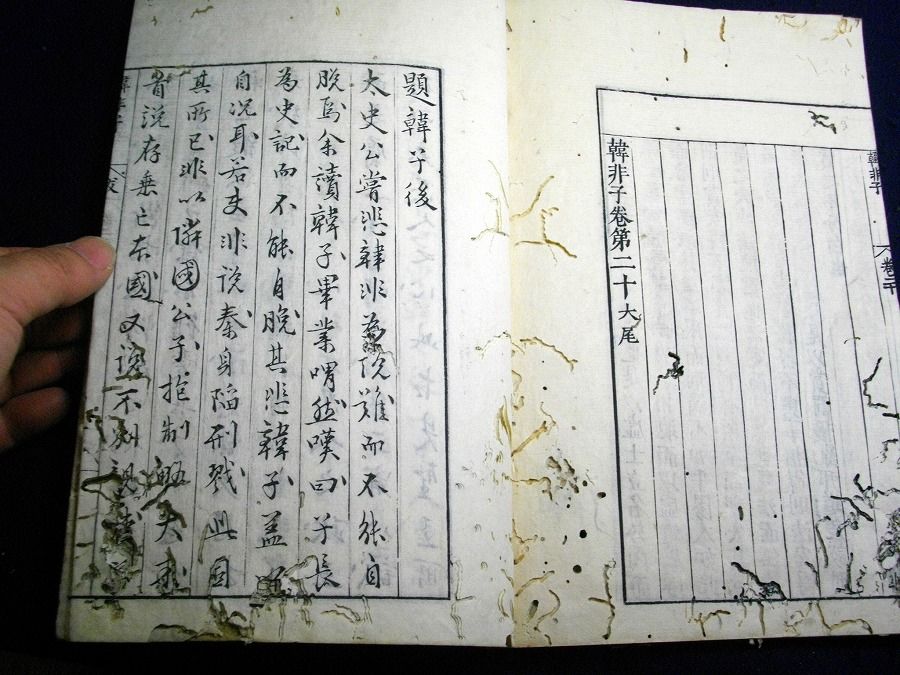 韓非子
卷二十
韓非子卷第二十大尾
題韓子後
太史公嘗悲韓非為說難而不能自
脫焉余讀韓子畢業喟然嘆曰子長
為史記而不能自脫其悲韓子蓋
自況耳若夫非說秦身陷刑戮此固
其所已非以隣國公子
昔說存無亡本國又說不